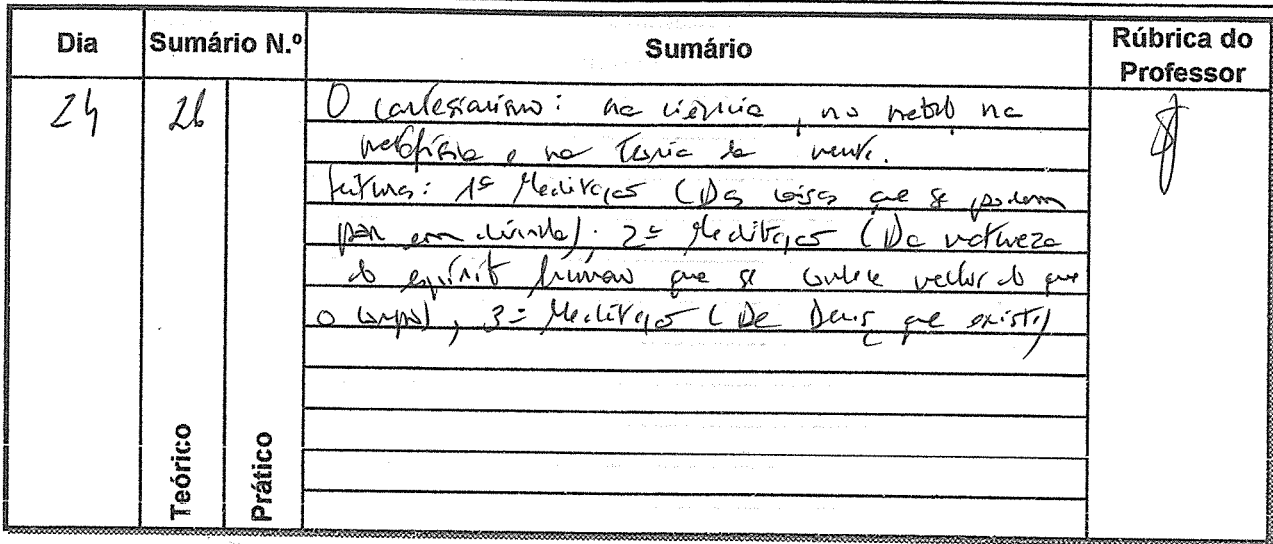 Dia Sumário N.º Sumário Rúbrica do Professor
24 26
O cartesianismo: na ciência, no método na
metafísica e na Teoria da mente.
Leitura: 1ª Meditação (Das coisas que se podem
pôr em dúvida). 2ª Meditação (Da natureza
do espírito humano que se conhece melhor do que
o corpo), 3ª Meditação (De Deus, que existe)
Teórico
Prático